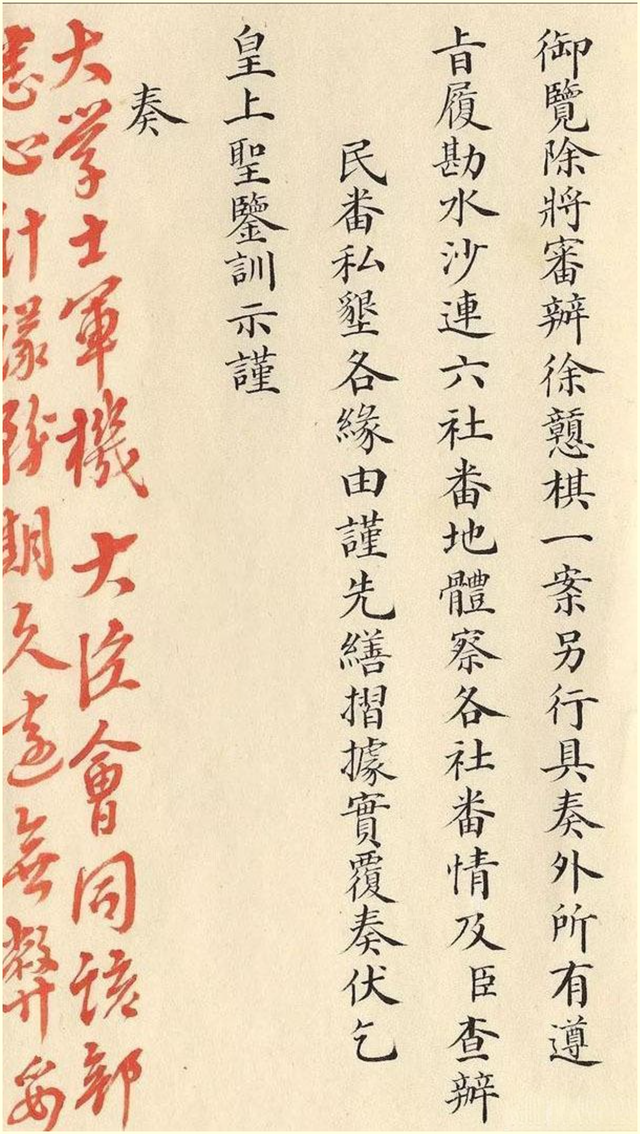 御覽除將審辦徐戇棋一案另行具奏外所有遵
旨履勘水沙連六社番地體察各社番情及臣查辦
民番私墾各緣由謹先繕摺據實覆奏伏乞
皇上聖鑒訓示謹
奏
大学士軍機大臣會同該部
悉心計議務期久遠無弊妥